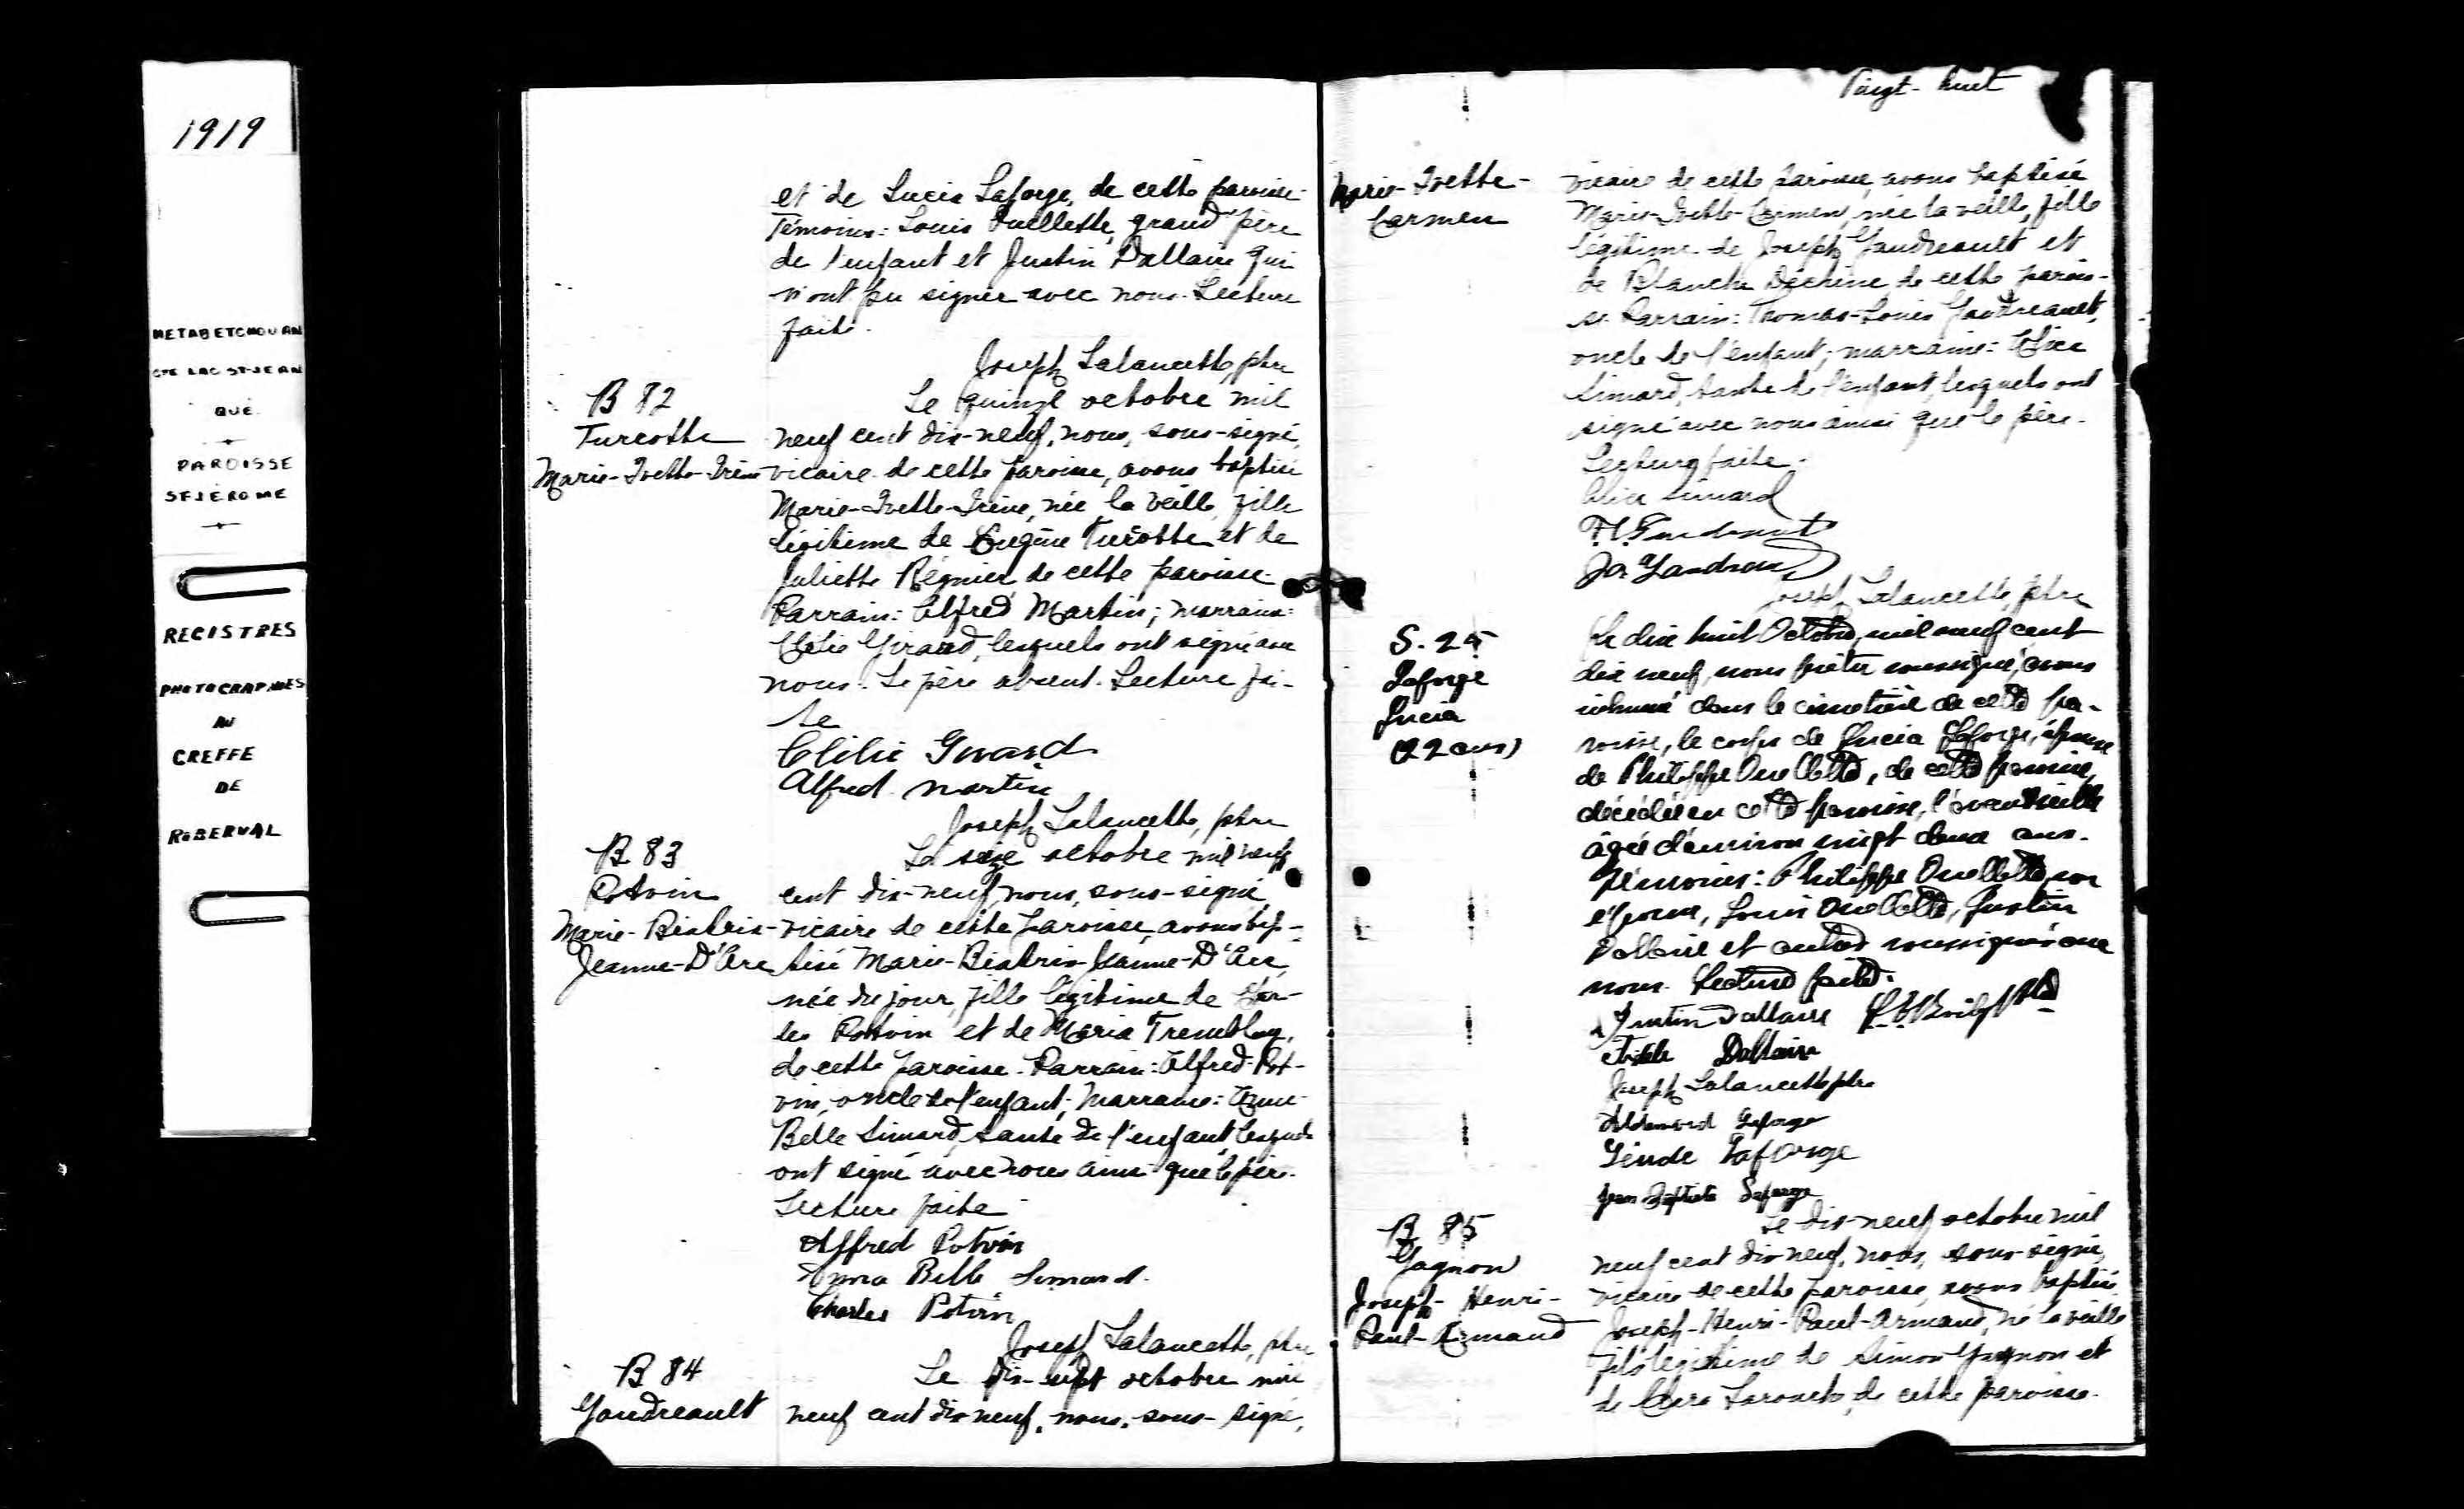 1919
METABETCHOUAN
CTE LAC ST-JEAN
QUÉ.
PAROISSE
ST-JÉROME
REGISTRES
PHOTOGRAPHIES
AU
GREFFE
DE
ROBERVAL
et de Lucia Laforge, de cette paroisse.
Témoins: Louis Ouellette, grand'père
de l'enfant et Justin Dallaire qui
n'ont pu signer avec nous. Lecture
faite.
Joseph Lalancette, ptre
B 82
Turcotte
Marie-Ivette-Irène
Le quinze octobre mil
neuf cent dix-neuf, nous, sous-signé,
vicaire de cette paroisse, avons baptisé
Marie-Ivette-Irène, née la veille, fille
légitime de Eugène Turcotte et de
Juliette Régnier de cette paroisse.
Parrain: Alfred Martin; marraine:
Clélie Girard, lesquels ont signé avec
nous. Le père absent. Lecture fai-
te
Clélie Girard
Alfred Martin
Joseph Lalancette, ptre
B 83
Potvin
Marie-Béatrix-
Jeanne-D'Arc
Le seize octobre mil neuf
cent dix-neuf, nous, sous-signé,
vicaire de cette paroisse, avons bap-
tisé Marie-Béatrix-Jeanne-D'Arc,
née du jour, fille légitime de Char-
les Potvin et de Maria Tremblay,
de cette paroisse. Parrain: Alfred Pot-
vin, oncle de l'enfant; marraine: Anna-
Belle Simard, tante de l'enfant, lesquels
ont signé avec nous ainsi que le père.
Lecture faite
Alfred Potvin
Anna Belle Simard.
Charles Potvin
Joseph Lalancette, ptre
B 84
Gaudreault
Le dix-sept octobre mil
neuf cent dix neuf, nous, sous-signé,
Vingt-huit
Marie-Ivette-
Carmen
vicaire de cette paroisse, avons baptisé
Marie-Ivette-Carmen, née la veille, fille
légitime de Joseph Gaudreault et
de Blanche Dechêne de cette parois-
se. Parrain: Thomas-Louis Gaudreault,
oncle de l'enfant; marraine: Alice
Simard, tante de l'enfant, lesquels ont
signé avec nous ainsi que le père.
Lecture faite.
Alice Simard
Joseph Lalancette, ptre
S. 25
Laforge
Lucia
(22 ans)
Le dix huit Octobre, mil neuf cent
dix neuf, nous prêtre soussigné, avons
inhumé dans le cimetière de cette pa-
roisse, le corps de Lucia Laforge, épouse
de Philippe Ouellette, de cette paroisse,
décédée en cette paroisse, l'avant veille
âgée d'environ vingt deux ans.
Témoins: Philippe Ouellette, son
époux, Louis Ouellette, Justin
Dallaire et autres soussignés avec
nous. Lecture faite.
Justin Dallaire
Dallaire
Joseph Lalancette ptre
Laforge
Laforge
Jean Baptiste Laforge
B 85
Gagnon
Joseph-Henri-
Paul-Armand
Le dix-neuf octobre mil
neuf cent dix neuf, nous, sous-signé,
vicaire de cette paroisse, avons baptisé
Joseph-Henri-Paul-Armand, né la veille
fils légitime de Simon Gagnon et
de Clara Larouche, de cette paroisse.